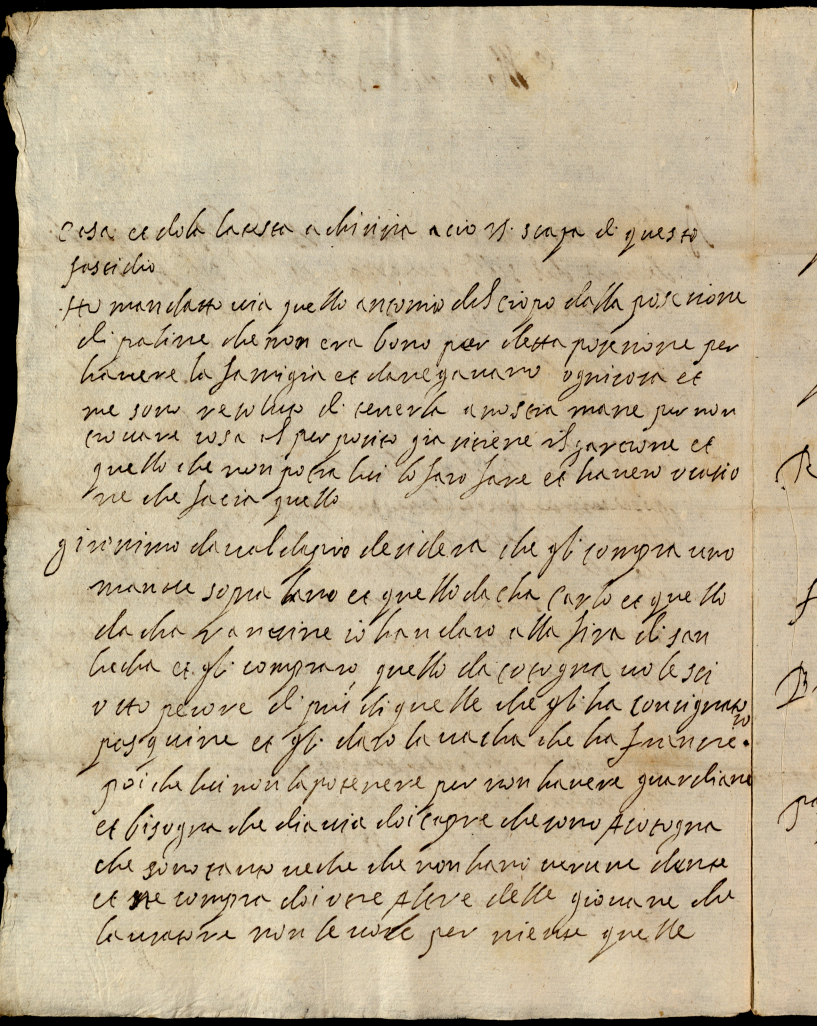 casa et dola la testa a chi sia a cio si scapa di questo
fastidio
Ho mandatto via quello antonio del ciopo dalla posecione
di paline che non era bono per detta posesione per
havere la famigia et danegavano ognicosa et
me sono resoluto di tenerla a nostra mane per non
trovare cosa al per posito gia vi tiene il garcione et
quello che non potra lui lo faro fare et havero ocasio
ne che facia quello
gironimo da val dapio desidera che gli compra uno
manco sopra lano et quello da cha carlo et quello
da cha io handaro alla fira di san
lucha et gli compraro quello da cotogna vole sei
o otto pecore di piu di quelle che gli ha consignato
pasquine et gli daro la vacha che ha francie
poi che lui non la po tenere per non havere guardiane
et bisogna che dia via doi capre che sono a cotogna
che sono tanto veche che non hano veruno dente
et ne compra doi o tre altre delle giovane che
lavratore non le vole per niente quelle